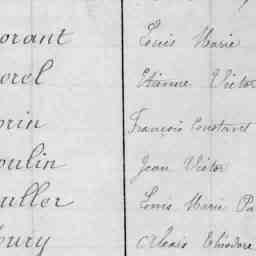 orant Louis Marie
orel Etienne Victor
orin François Constant
oulin Jean Victor
uller Louis Marie Pa
oury Alexis Théodore